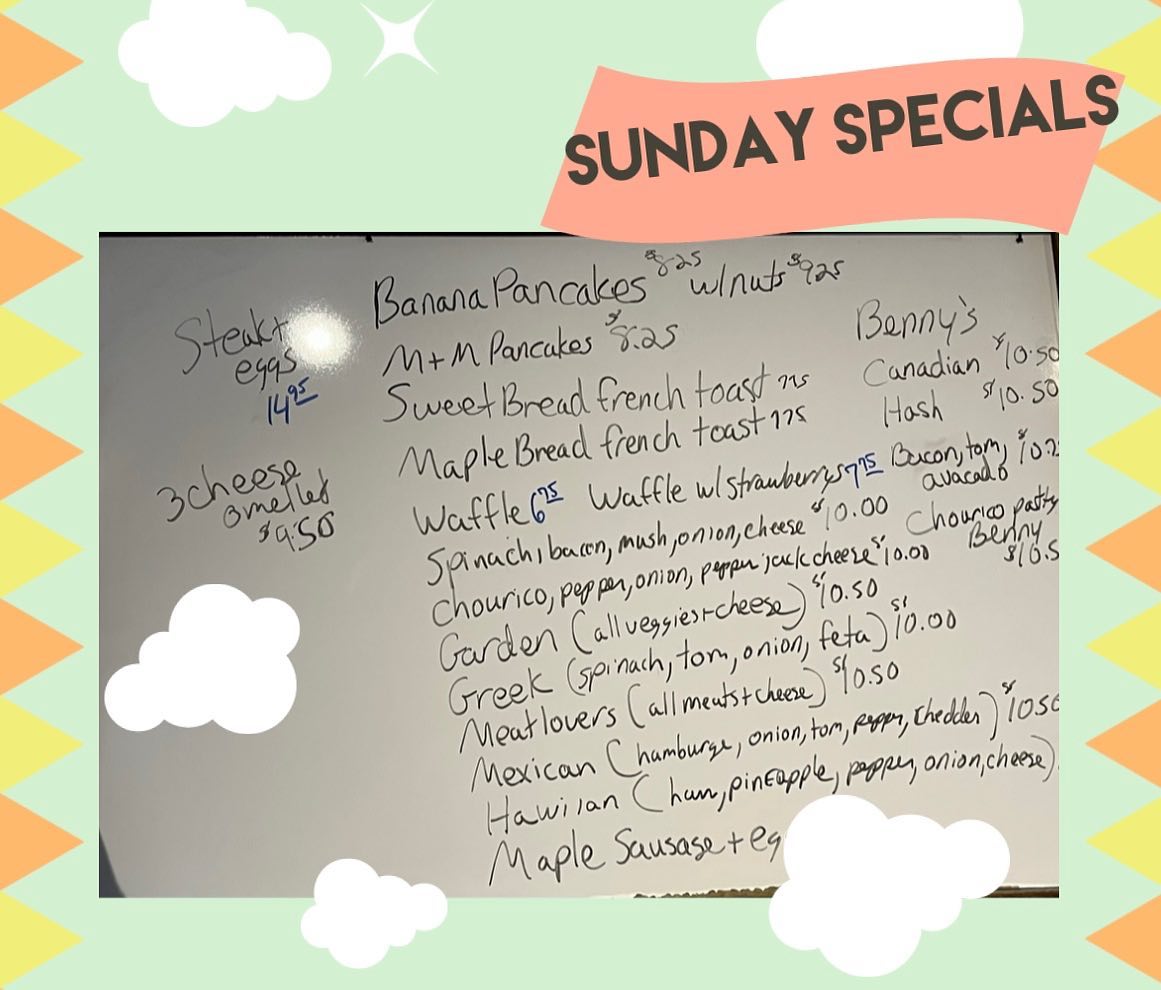 SUNDAY SPECIALS
Steak +
eggs
14 95
3 cheese
omellet
$9.50
Banana Pancakes $8.25 w/nuts $9.25
M+M Pancakes $8.25
Sweet Bread french toast 775
Maple Bread french toast 775
Waffle 6 75 Waffle w/ strawberrys 7 75
Spinach, bacon, mush, onion, cheese $10.00
Chourico, pepper, onion, pepper jack cheese $10.00
Garden (all veggies + cheese) $10.50
Greek (spinach, tom, onion, feta) $10.00
Meatlovers (all meats + cheese) $10.50
Mexican (hamburge, onion, tom, pepper, Chedder) $10.50
Hawiian (ham, pineapple, pepper, onion, cheese)
Maple Sausage + eg
Benny's
Canadian $10.50
Hash $10.50
Bacon, tom, $10.2
avacado
Chourico patty
Benny
$10.5